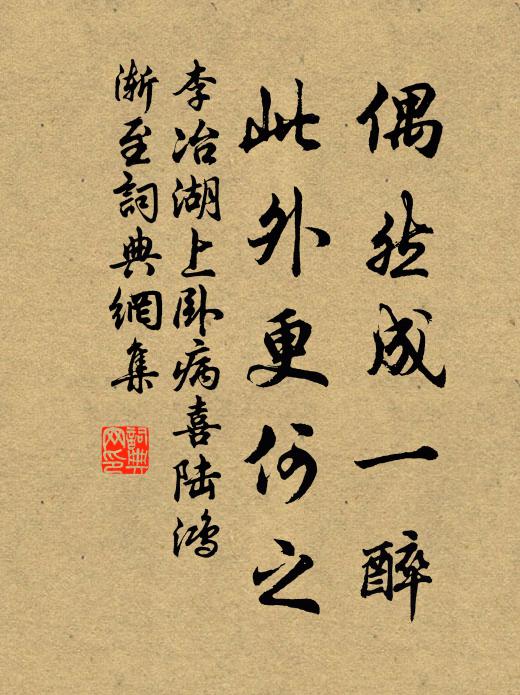 偶然成一醉
此外更何之
李冶湖上卧病喜陆鸿
渐至詞典網集
詞典
网印